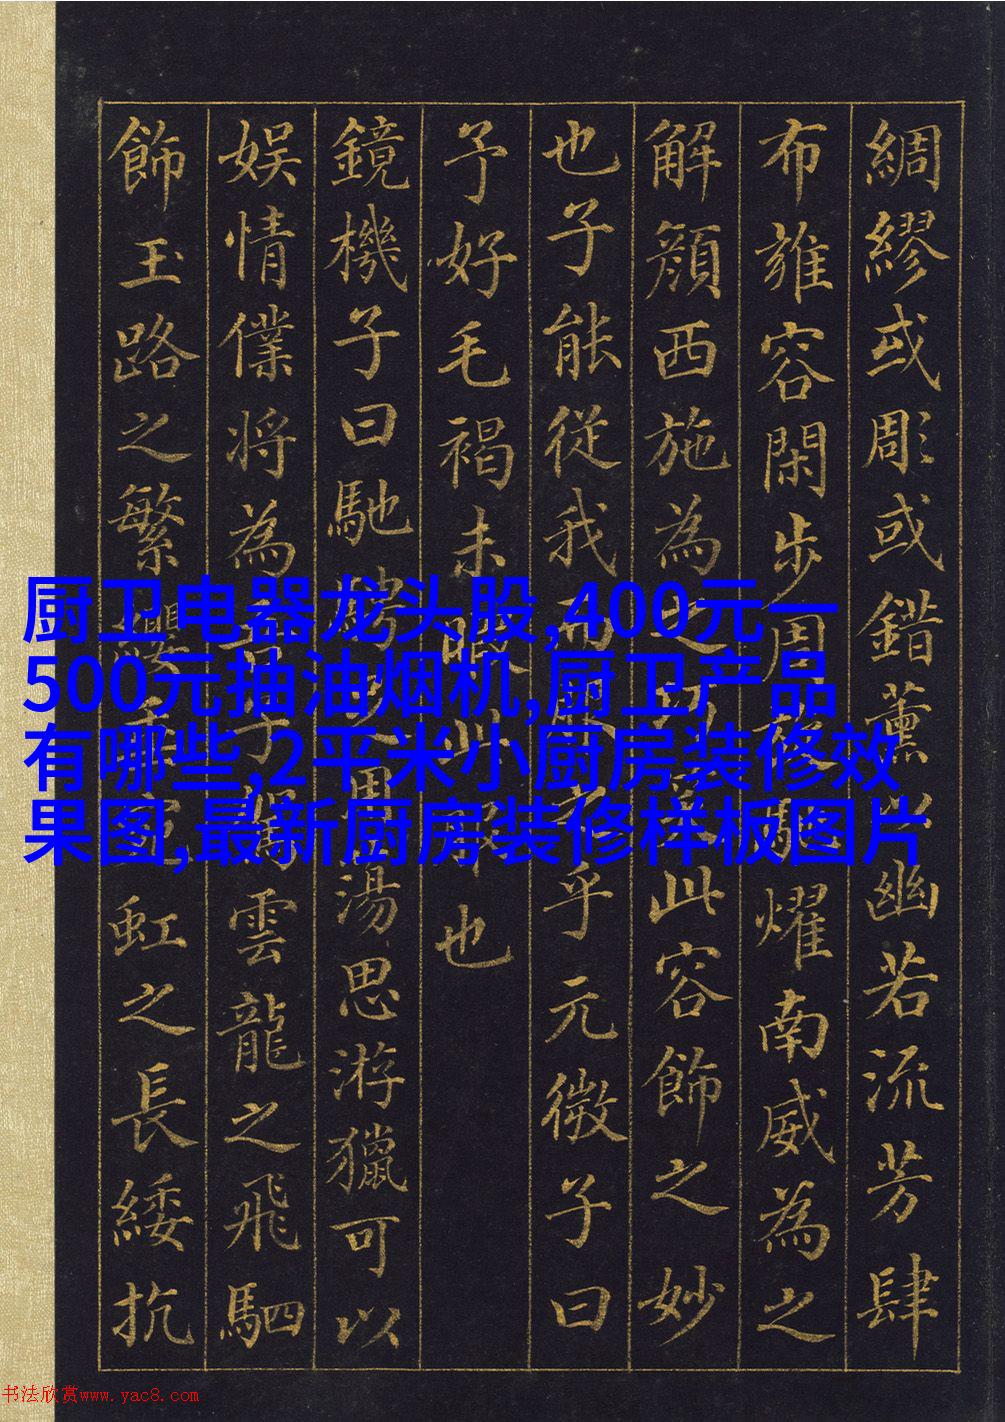 綢繆或彫或錯薰以幽若流芳肆
布雍容閑步周旋馳耀南威為之
解顏西施為之巧笑此容飾之妙
也子能從我而服之乎元微子曰
予好毛褐未暇此服也
鏡機子曰馳騁足用蕩思游獵可以
娛情僕將為吾子駕雲龍之飛駟
飾玉路之繁纓垂宛虹之長綏抗
厨卫电器龙头股,400元一
500元抽油烟机,厨卫产品
有哪些,2平米小厨房装修效
果图,最新厨房装修样板图片
书法欣赏www.yac8.com